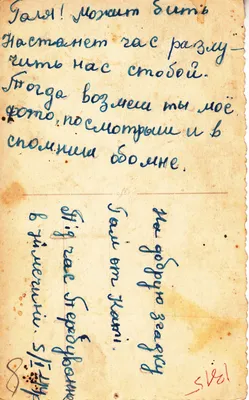 Галя!можит бить
Настанет час разлу-
чить нас стобой.
Тогда возмеш ты моё
фото, посмотрыш и в
спомниш обомне.
На добрую згадку
Гали от Каті.
Під час Перебування
в Німеччині 5/